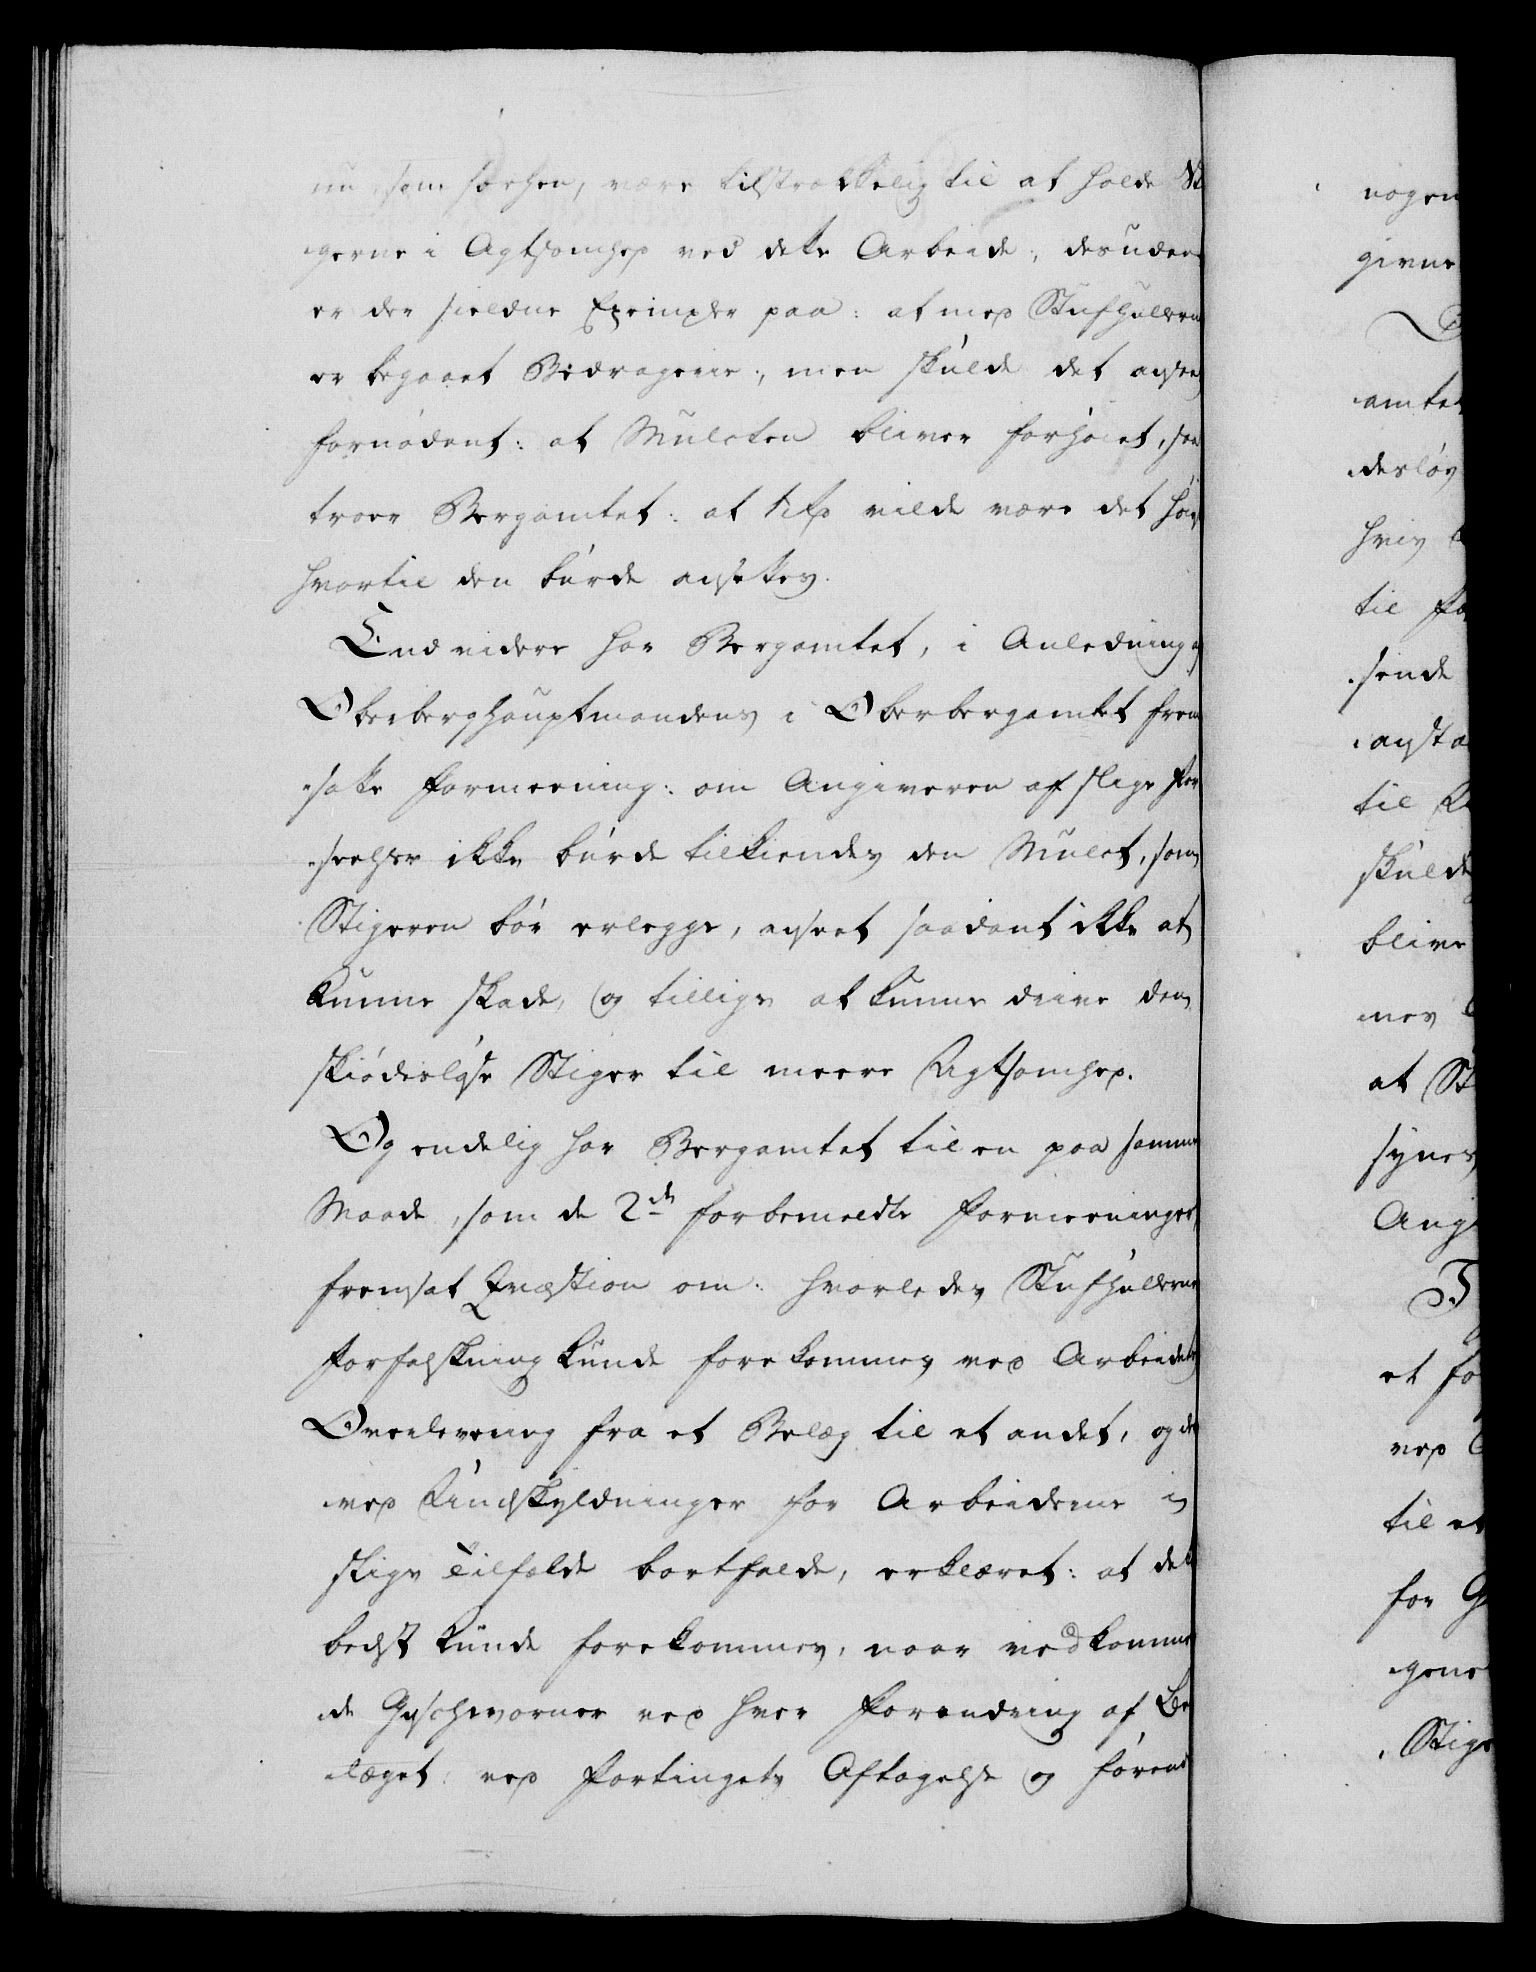 nu, som forhen, være tilstrækkelig til at holde St
gerne i Agtsomhed ved dette Arbeide, desuden
er der sieldne Exempler paa: at med Stufhullerne
er begaaet Bedragerie, men skulde det ansees
fornødent: at Mulcten bliver forhøiet, saa
troer Bergamtet: at vilde være det høi
hvortil den burde ansettes.
Endvidere har Bergamtet, i Anledning
Oberberghauptmandens i Oberbergamtet frem
satte Formeening: om Angiveren af slige For
seelser ikke burde tilkiendes den Mulct, som
Stigeren bør erlegge, anseet saadant ikke at
kunne skade, og tillige at kunne drive den
skiødesløse Stiger til meere Agtsomhed.
Og endelig har Bergamtet til en paa samme
Maade, som de 2de forbemeldte Formeeninger,
fremsat Qvæstion om: hvorledes Stufhullernes
Forfalskning kunde forekommes ved Arbeidets
Overlevering fra et Belæg til et andet, og
ved Undskyldninger for Arbeiderne i
slige Tilfælde bortfalde, erklæret: at det
bedst kunde forekommes, naar vedkommen
de Geschworner ved hver Forandring af Be
læget: ved Fortingets Aftagelse og foren
nogen
givne
amtet
desløs
hvis
til Fo
sende
ansta
til
skulde
blive
mes
at St
synes
Ang
I
et fo
ved
til et
for G
gene
Stige